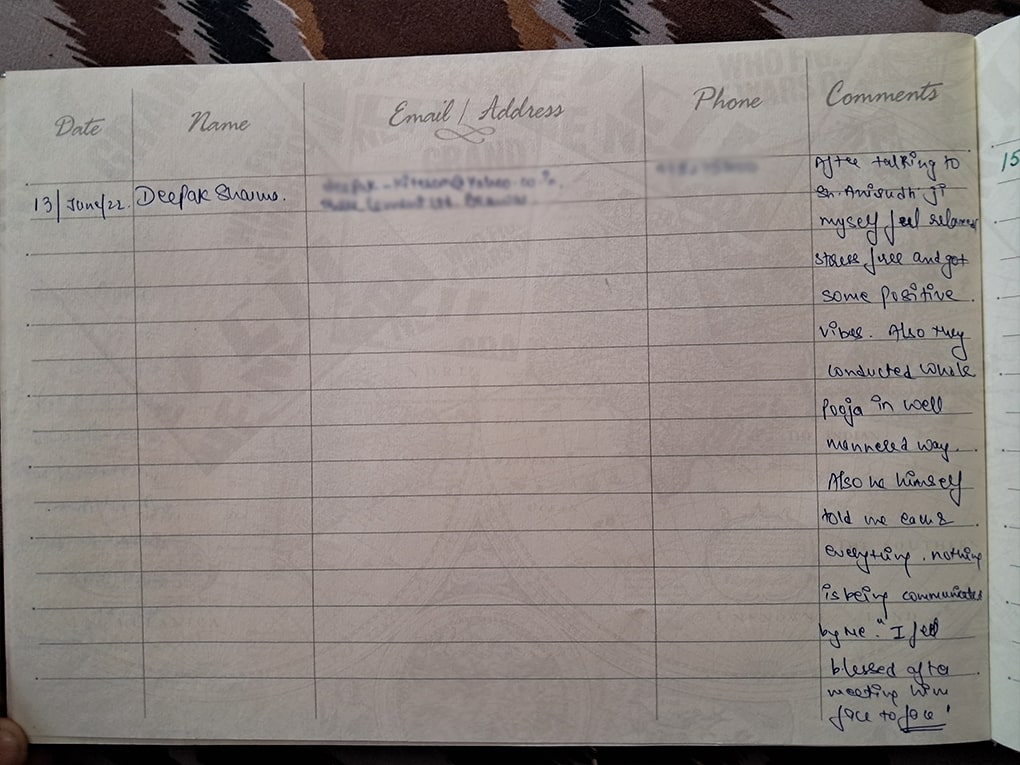 Date Name Email / Address Phone Comments
13/June/22. Deepak Sharma.
After talking to
Sh. Anirudh ji
myself feel relaxed
stress free and got
some positive.
vibes. Also they
conducted whole
Pooja in well
mannered way.
Also he himself
told me each &
everything. nothing
is being communicated
by me. "I feel
blessed after
meeting him
face to face'
15